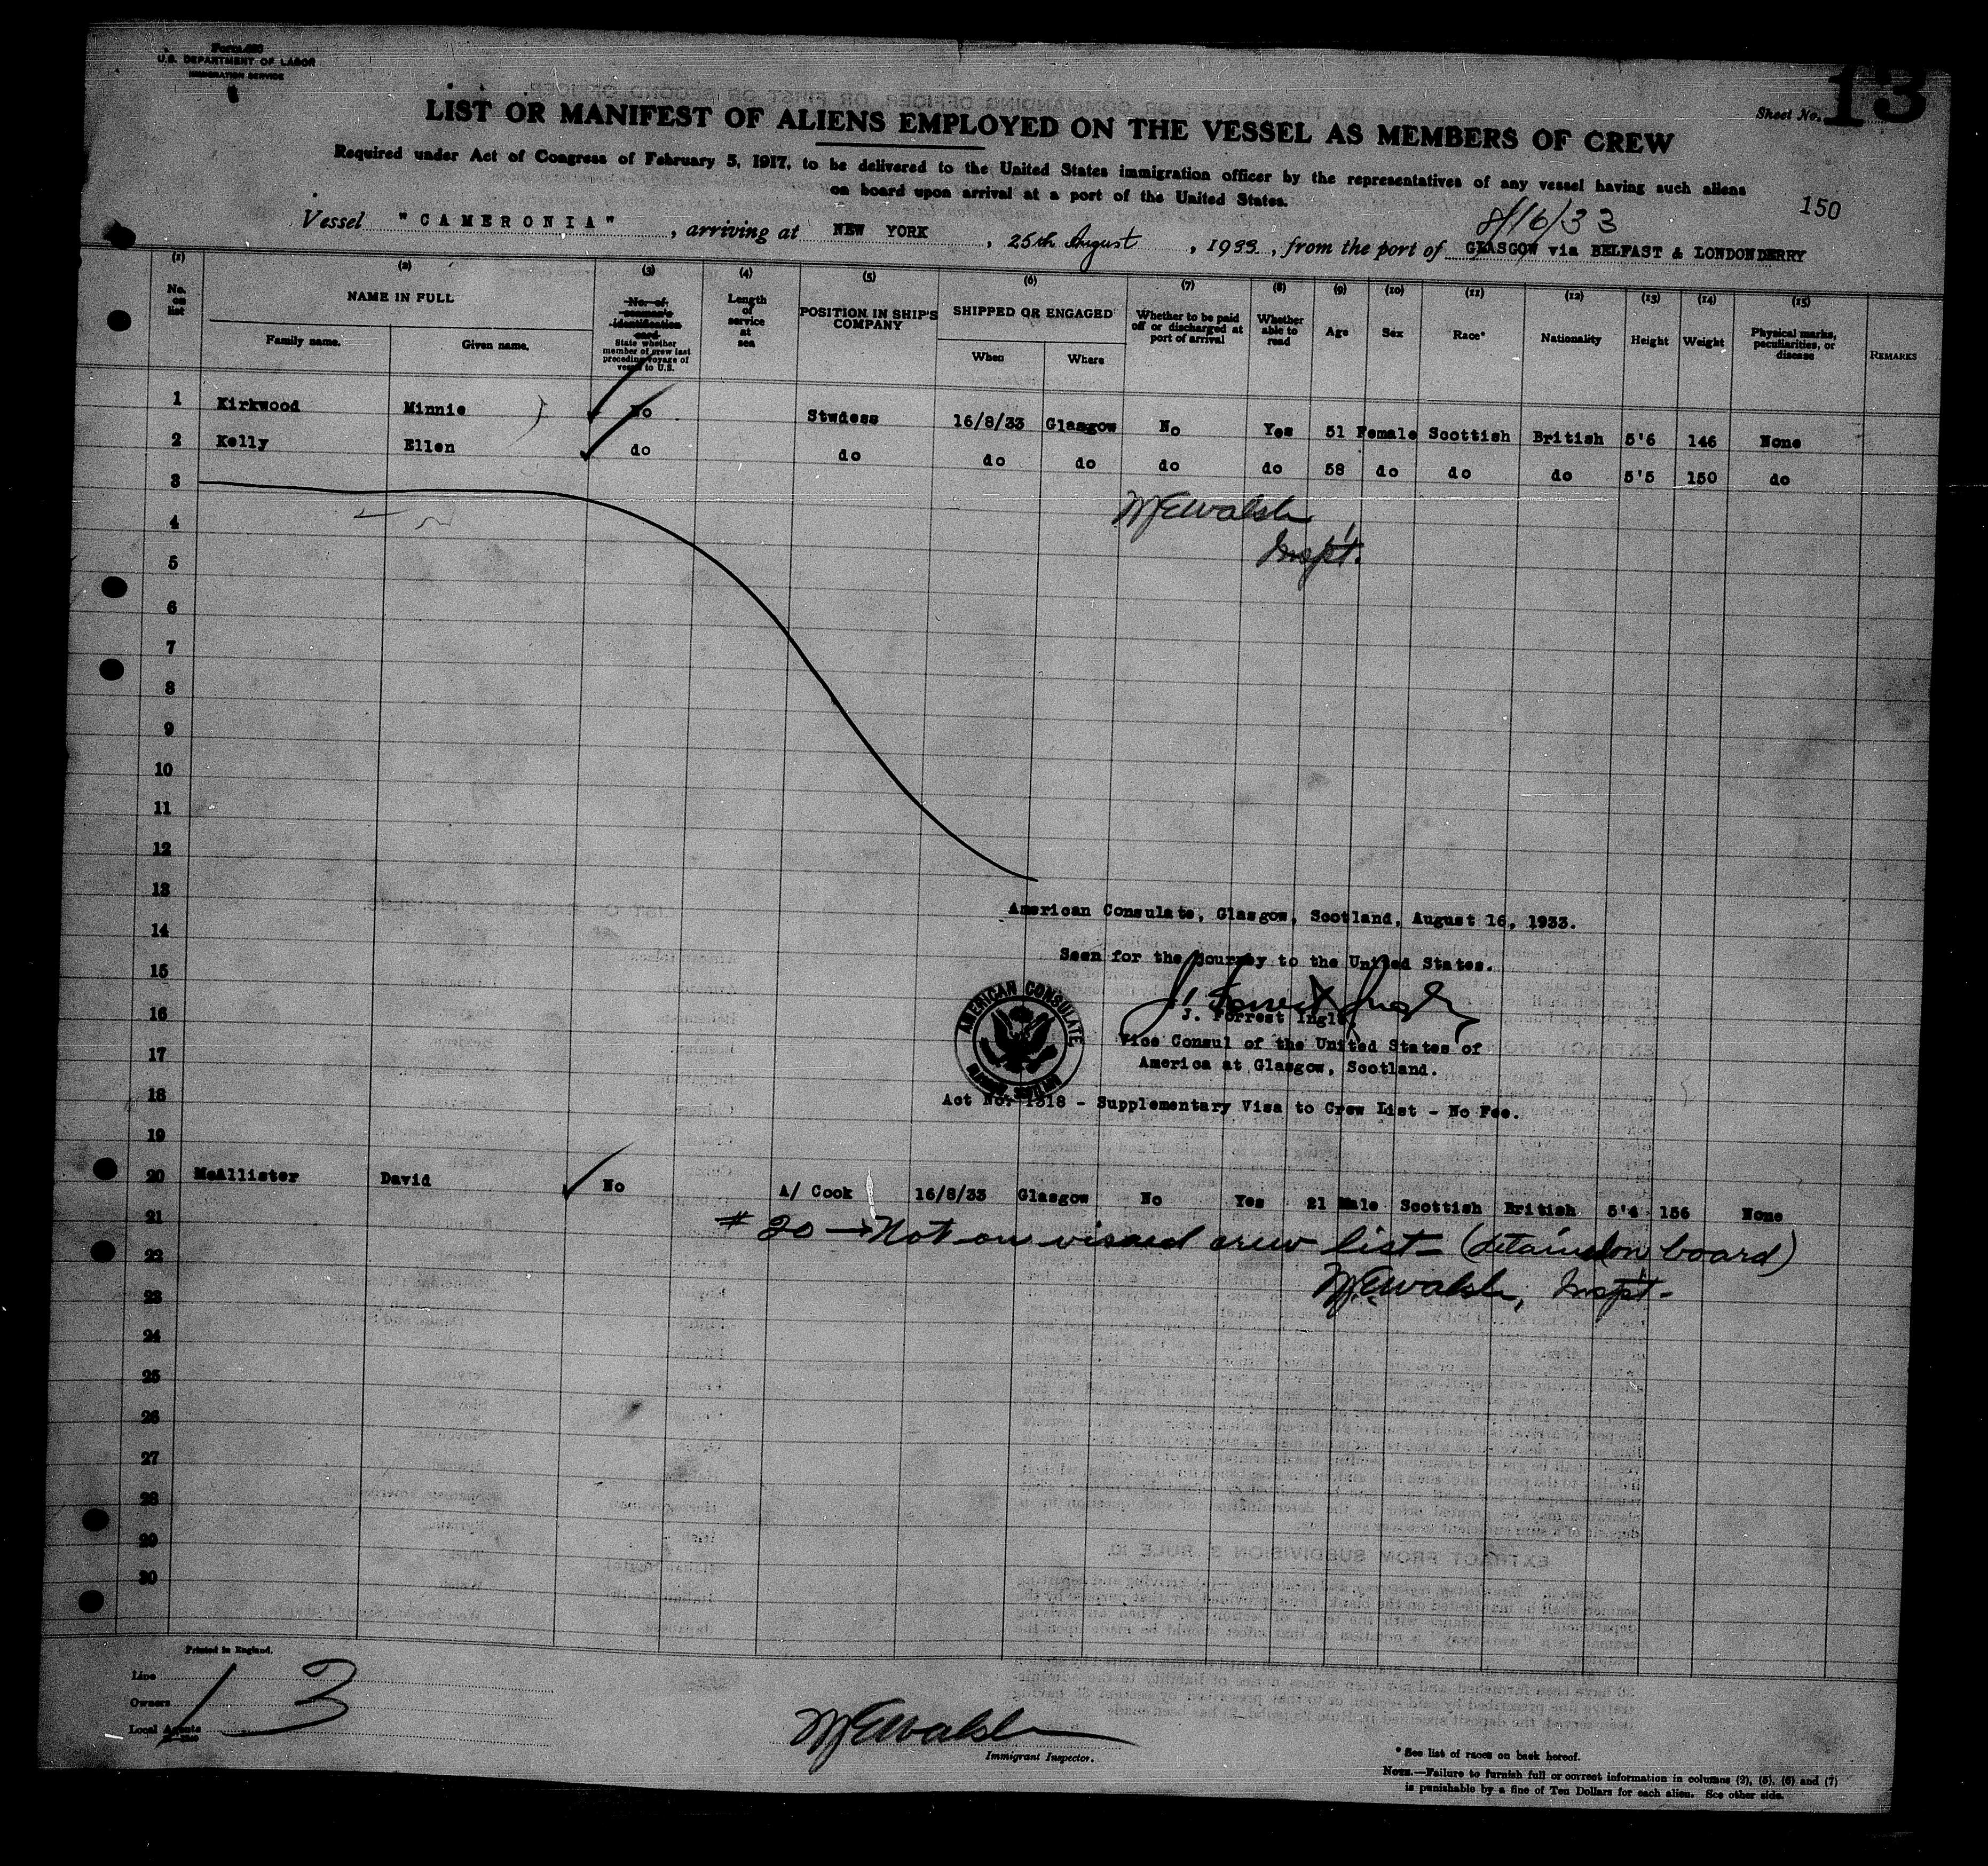 Form 680
U.S. DEPARTMENT OF LABOR
IMMIGRATION SERVICE
Sheet No. 13
LIST OR MANIFEST OF ALIENS EMPLOYED ON THE VESSEL AS MEMBERS OF CREW
Required under Act of Congress of February 5, 1917, to be delivered to the United States immigration officer by the representatives of any vessel having such aliens
on board upon arrival at a port of the United States.
150
8/16/33
Vessel "CAMERONIA", arriving at NEW YORK, 25th August, 1933, from the port of GLASGOW via BELFAST & LONDONDERRY
(1) (2) (3) (4) (5) (6) (7) (8) (9) (10) (11) (12) (13) (14) (15)
No. on list
NAME IN FULL
Family name. Given name.
No. of seaman's identification card
State whether member of crew last preceding voyage of vessel to U.S.
Length of service at sea
POSITION IN SHIP'S COMPANY
SHIPPED OR ENGAGED
When Where
Whether to be paid off or discharged at port of arrival
Whether able to read
Age
Sex
Race*
Nationality
Height
Weight
Physical marks, peculiarities, or disease
REMARKS
1 Kirkwood Minnie No Stwdess 16/8/33 Glasgow No Yes 51 Female Scottish British 5'6 146 None
2 Kelly Ellen do do do do do do 58 do do do 5'5 150 do
3
McWalsh
4
Inspt.
5
6
7
8
9
10
11
12
13
American Consulate, Glasgow, Scotland, August 16, 1933.
14
Seen for the journey to the United States.
15
AMERICAN CONSULATE
J. Forrest Ingle
16
J. Forrest Ingle,
17
Vice Consul of the United States of
America at Glasgow, Scotland.
18
Act No. 1318 - Supplementary Visa to Crew List - No Fee.
19
20 McAllister David No A/ Cook 16/8/33 Glasgow No Yes 21 Male Scottish British 5'4 156 None
21
# 20 → Not on visaed crew list - (detained on board)
22
McWalsh, Inspt.
23
24
25
26
27
28
29
30
Printed in England.
Line
Owners
Local Agents
13
McWalsh
Immigrant Inspector.
* See list of races on back hereof.
NOTE.—Failure to furnish full or correct information in columns (2), (5), (6) and (7)
is punishable by a fine of Ten Dollars for each alien. See other side.